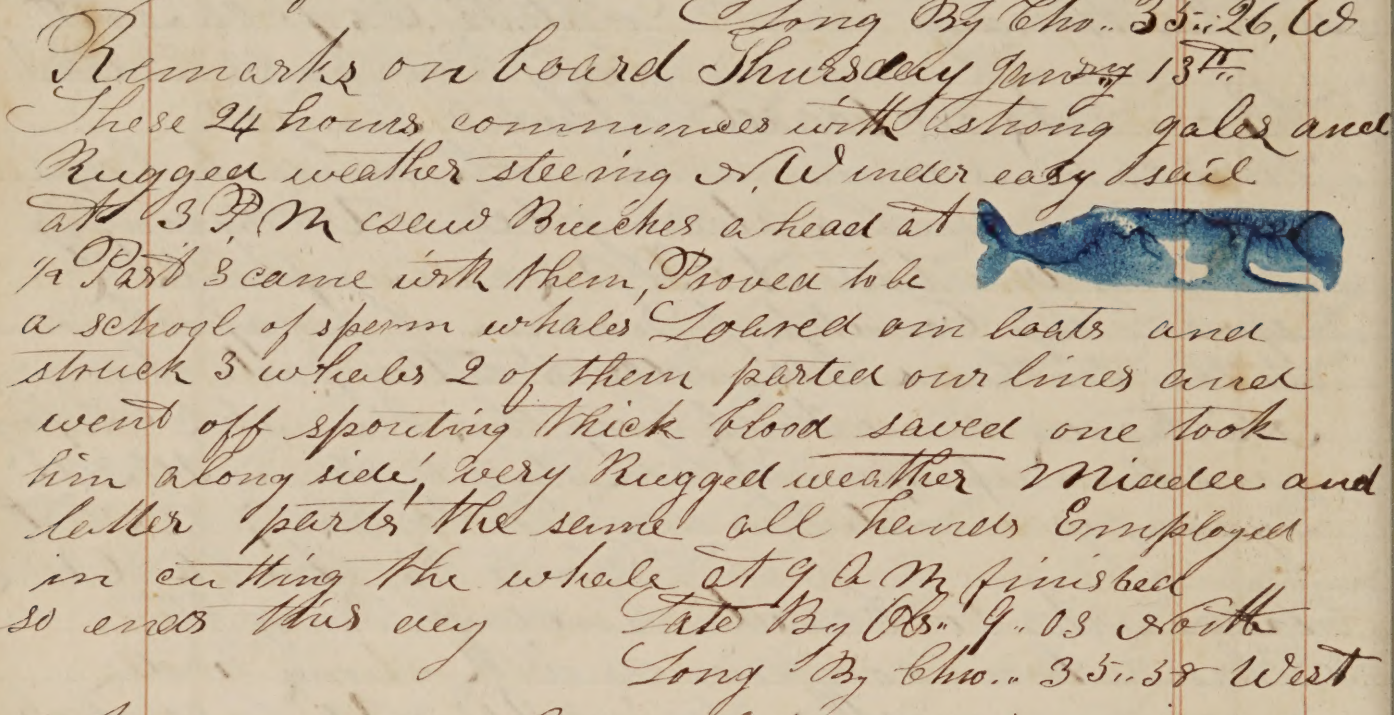 Long By Chro.. 35..26, W
Remarks on board Thursday January 13th..
These 24 hours commences with strong gales and
Rugged weather steeing N. W under easy sail
at 3 P, M saw Bleaches ahead at
1/2 Past 3 came with them, Proved to be
a school of sperm whales Loared our boats and
struck 3 whales 2 of them parted our lines and
went off spouting thick blood saved one took
him along side, very Rugged weather Middle and
latter parts the same all hands Employed
in cutting the whale at 9 A M finished
so ends this day Late By Obs.. 9..03 North
Long By Chro... 35..38 West